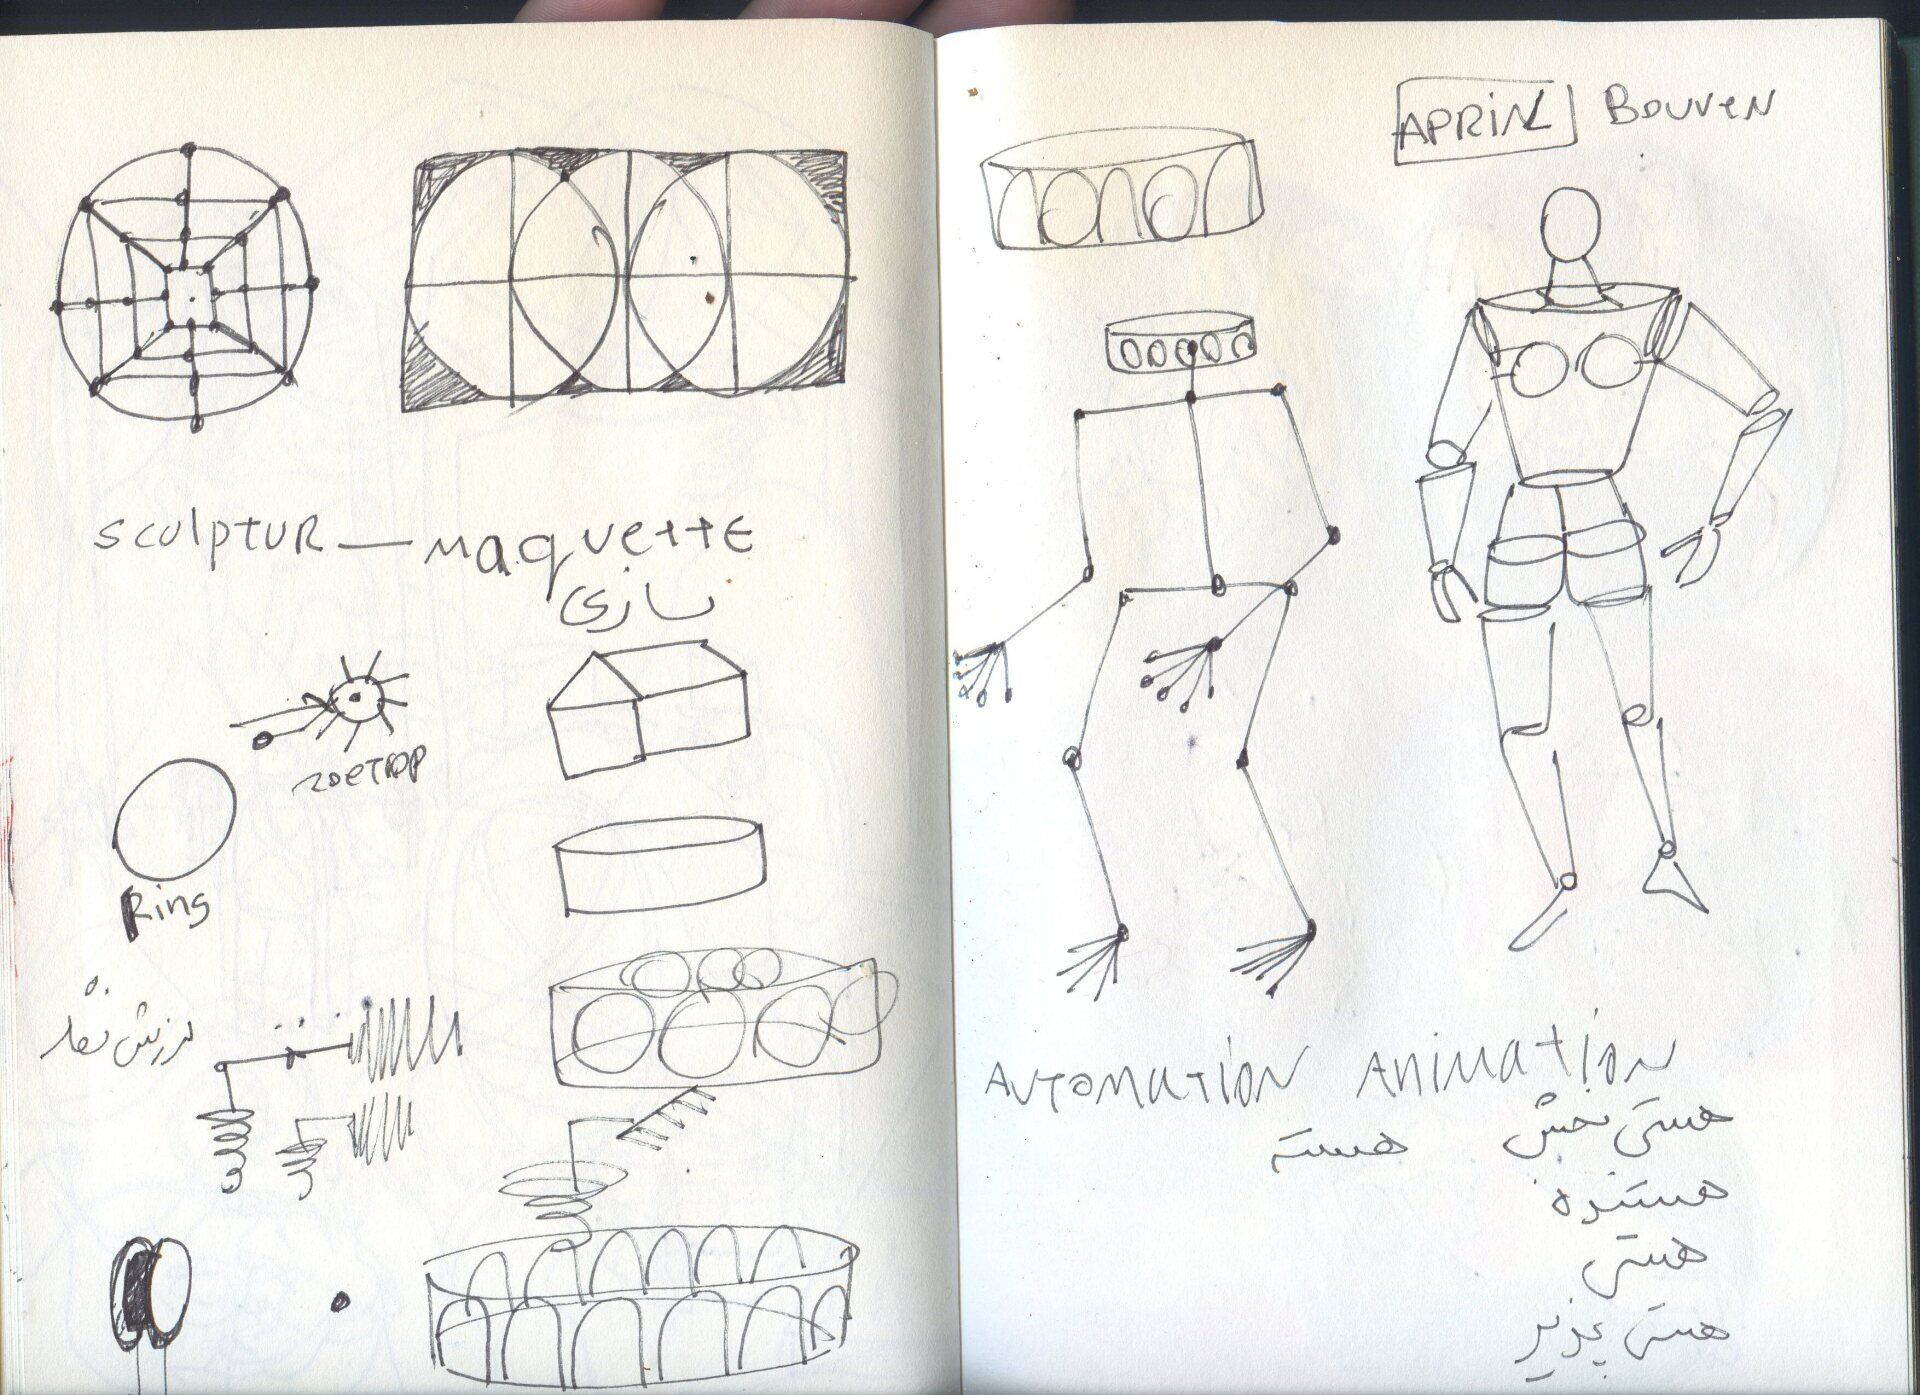 sculptur — Maquette
سازی
zoetrop
Ring
لرزش نقطه
APRIN Bouven
Automation Animation
هستی بخش
هسته
هستنده
هستی
هستی پذیر